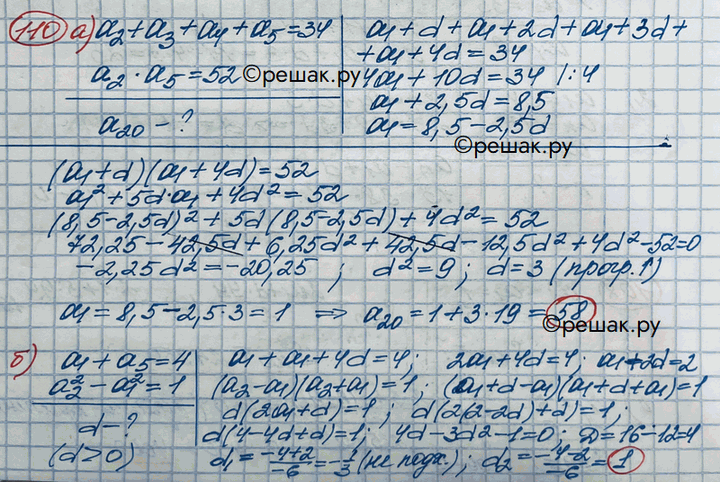 110 а) a₂+a₃+a₄+a₅=34
a₂·a₅=52 ©решак.ру
a₂₀-?
a₁+d+a₁+2d+a₁+3d+
+a₁+4d=34
4a₁+10d=34 /:4
a₁+2,5d=8,5
a₁=8,5-2,5d
©решак.ру
(a₁+d)(a₁+4d)=52
a₁²+5d·a₁+4d²=52
(8,5-2,5d)²+5d(8,5-2,5d)+4d²=52
72,25-42,5d+6,25d²+42,5d-12,5d²+4d²-52=0
-2,25d²=-20,25; d²=9; d=3 (прогр.↑)
a₁=8,5-2,5·3=1 ⇒ a₂₀=1+3·19=58
©решак.ру
б) a₁+a₅=4
a₂²-a₁²=1
d-?
(d>0)
a₁+a₁+4d=4; 2a₁+4d=4; a₁+2d=2
(a₂-a₁)(a₂+a₁)=1; (a₁+d-a₁)(a₁+d+a₁)=1
d(2a₁+d)=1; d(2(2-2d)+d)=1;
d(4-4d+d)=1; 4d-3d²-1=0; D=16-12=4
d₁=(-4+2)/(-6)=-1/3 (не подх.); d₂=(-4-2)/(-6)=1